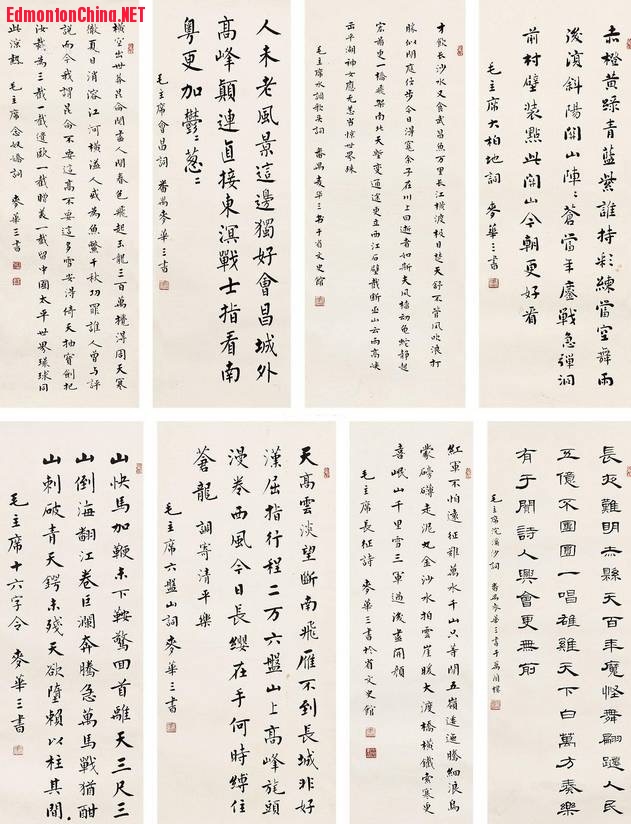 EdmontonChina.NET
赤橙黄綠青藍紫誰持彩練當空舞雨
後復斜陽關山陣〻蒼當年鏖戰急彈洞
前村壁裝點此關山今朝更好看
毛主席大柏地詞 麥華三書
才飲长沙水又食武昌魚万里长江橫渡极目楚天舒不管风吹浪打
胜似闲庭信步今日得宽余子在川上曰逝者如斯夫风樯动龟蛇静起
宏图更一橋飛架南北天塹变通途更立西江石壁截断巫山云雨高峡
出平湖神女應无恙当惊世界殊
毛主席水调歌头詞 番禺麦华三书于省文史館
人未老風景這邊獨好會昌城外
高峰顛連直接東溟戰士指看南
粤更加鬱〻蔥〻
毛主席會昌詞 番禺麥華三書
橫空出世莽昆侖閱盡人間春色飛起玉龍三百萬攪得周天寒
徹夏日消溶江河橫溢人或為魚鱉千秋功罪誰人曾與評
說而今我謂昆侖不要這高不要這多雪安得倚天抽寶劍把
汝裁為三截一截遺歐一截贈美一截留中國太平世界環球同
此涼熱 毛主席念奴嬌詞 麥華三書
長夜難明赤縣天百年魔怪舞翩躚人民
五億不團圓一唱雄雞天下白萬方奏樂
有于闐詩人興會更無前
毛主席浣溪沙詞 番禺麥華三書于
紅軍不怕遠征難萬水千山只等閒五嶺逶迤騰細浪烏
蒙磅礴走泥丸金沙水拍雲崖暖大渡橋橫鐵索寒更
喜岷山千里雪三軍過後盡開顏
毛主席長征詩 麥華三書於省文史館
天高雲淡望斷南飛雁不到長城非好
漢屈指行程二万六盤山上高峰旄頭
漫卷西風今日長纓在手何時縛住
蒼龍 調寄清平樂
毛主席六盤山詞 麥華三書
山快馬加鞭未下鞍驚回首離天三尺三
山倒海翻江卷巨瀾奔騰急萬馬戰猶酣
山刺破青天鍔未殘天欲墮賴以柱其間
毛主席十六字令 麥華三書